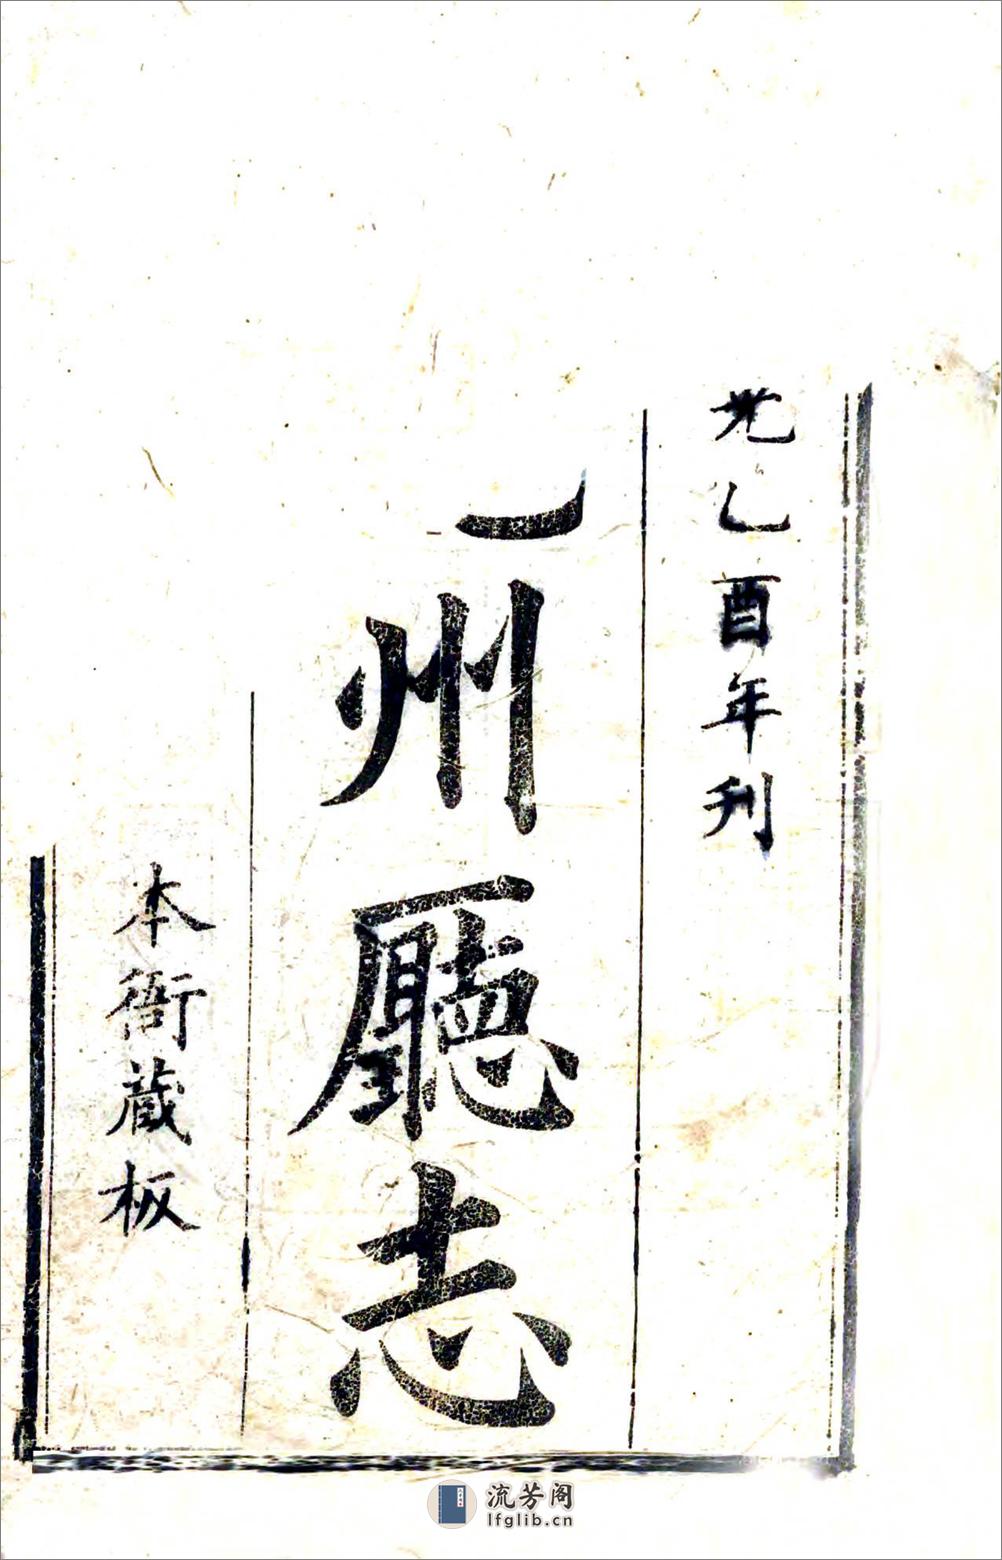 乙酉年刊
州廳志
本衙藏板
流芳阁
lfglib.cn